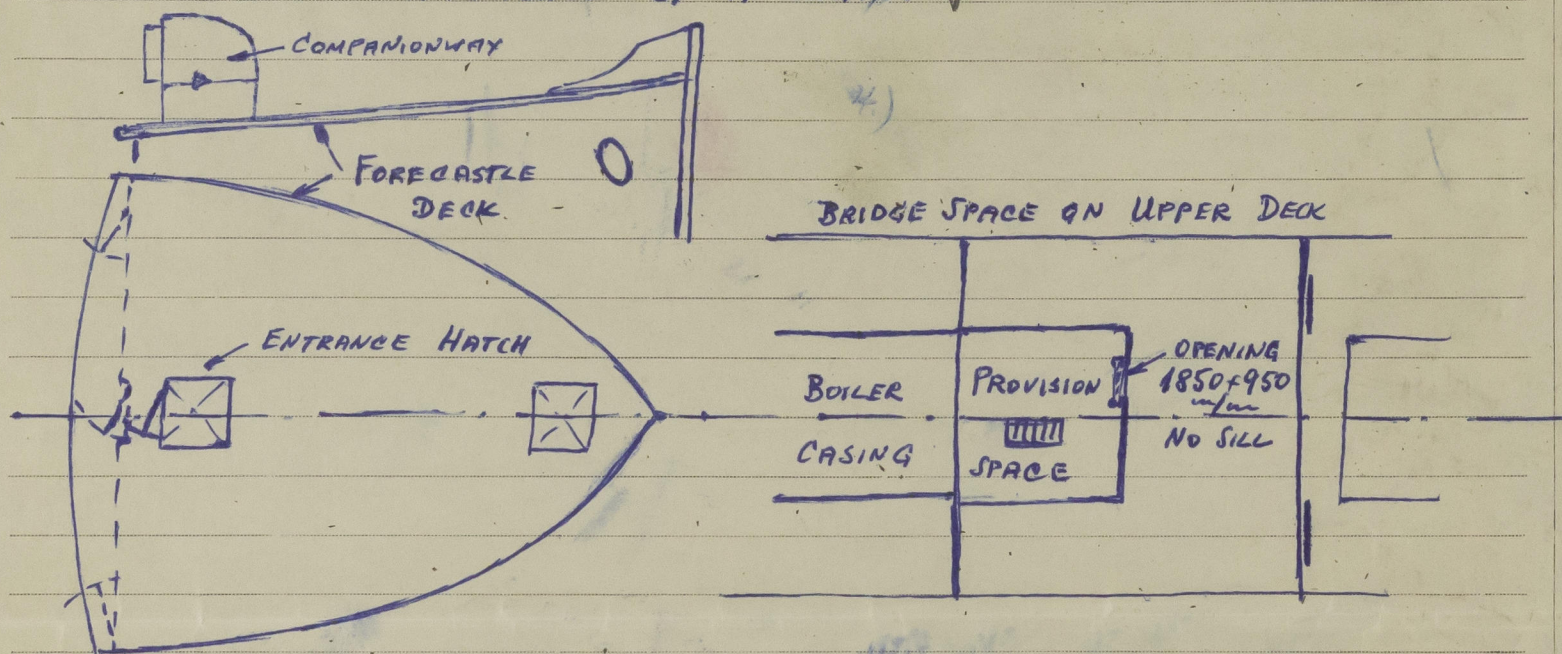 COMPANIONWAY
FORECASTLE
DECK
ENTRANCE HATCH
4.)
BRIDGE SPACE ON UPPER DECK
BOILER
CASING
PROVISION
SPACE
OPENING
1850+950
m/m
NO SILL